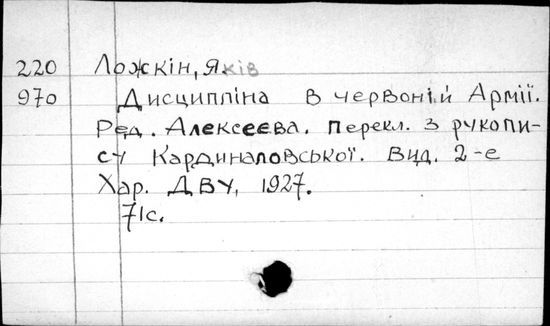 220 Ложкін, Яків
970 Дисципліна в червоній Армії.
Ред. Алексеєва. Перекл. з рукопи-
су Кардиналовської. Вид. 2-е
Хар. ДВУ, 1927.
71с.